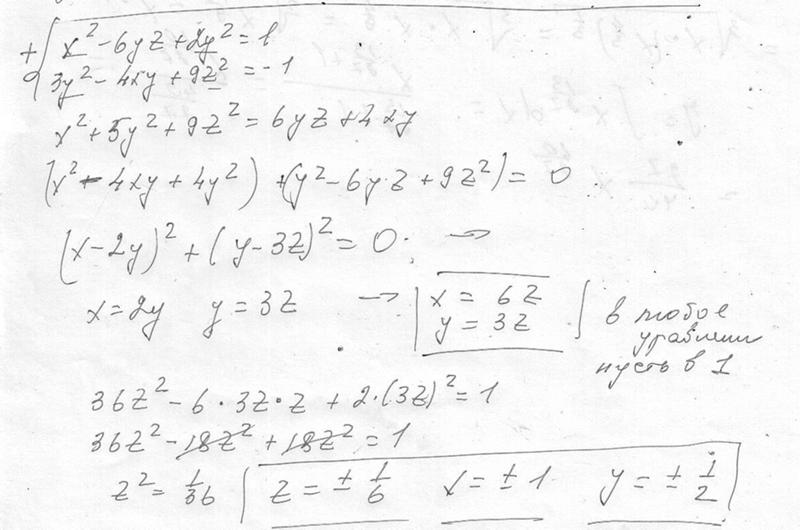 + { x² - 6yz + 2y² = 1
3y² - 4xy + 9z² = -1
x² + 5y² + 9z² = 6yz + 4xy
(x² - 4xy + 4y²) + (y² - 6yz + 9z²) = 0
(x - 2y)² + (y - 3z)² = 0; →
x = 2y y = 3z → | x = 6z
y = 3z } в любое
уравнение
пусть в 1
36z² - 6·3z·z + 2·(3z)² = 1
36z² - 18z² + 18z² = 1
z² = 1/36 | z = ± 1/6 x = ± 1 y = ± 1/2